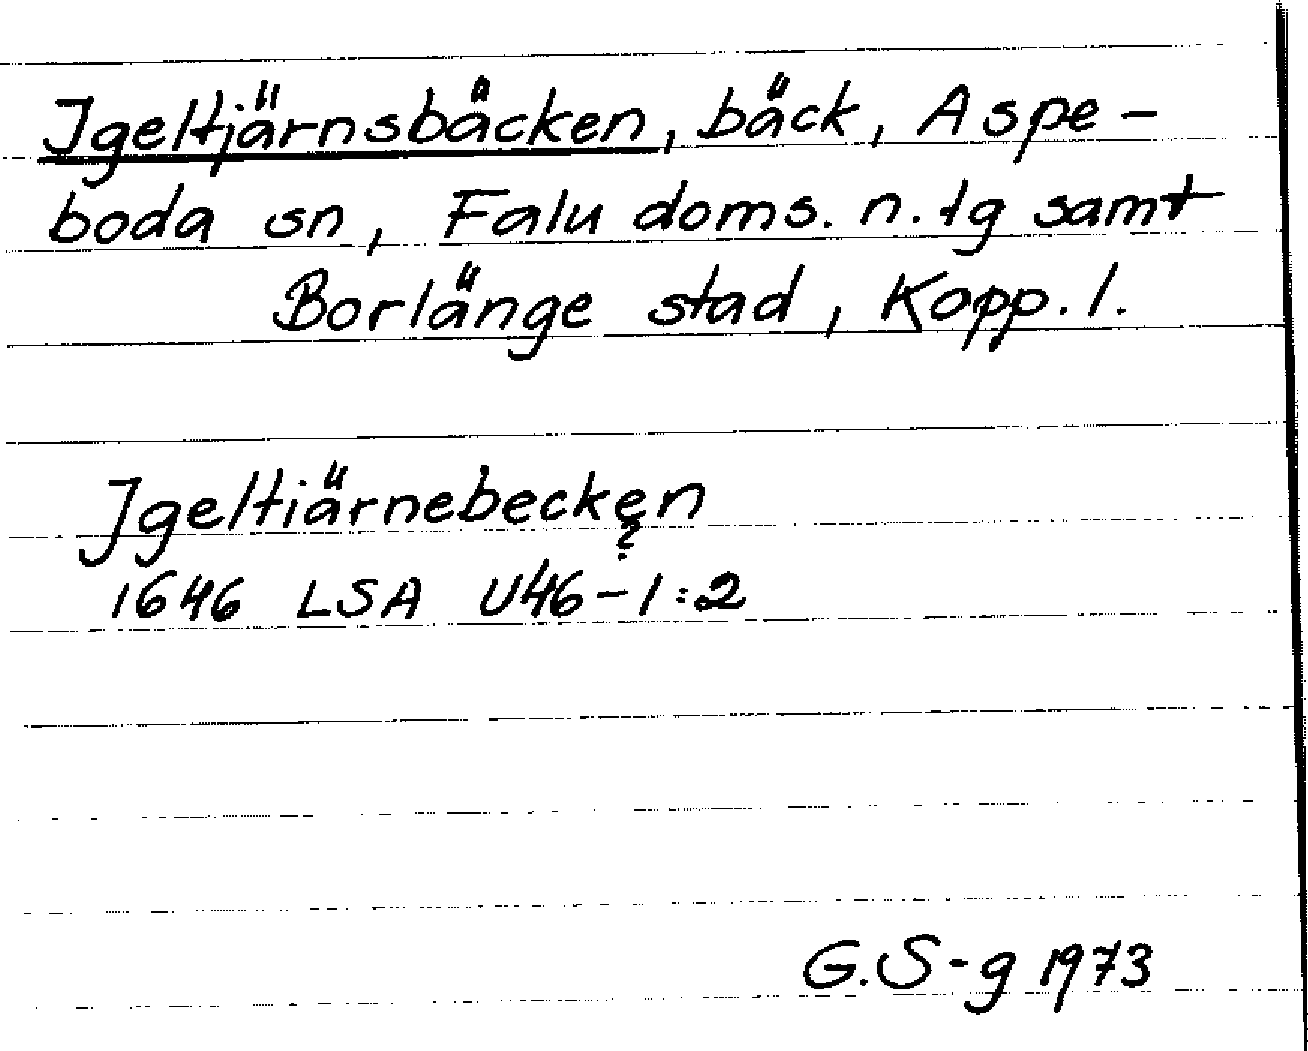 Jgeltjärnsbäcken, bäck, Aspe-
boda sn, Falu doms. n. tg samt
Borlänge stad, Kopp. l.
Jgeltiärnebecken
?
1646 LSA U46-1:2
G.S-g 1973